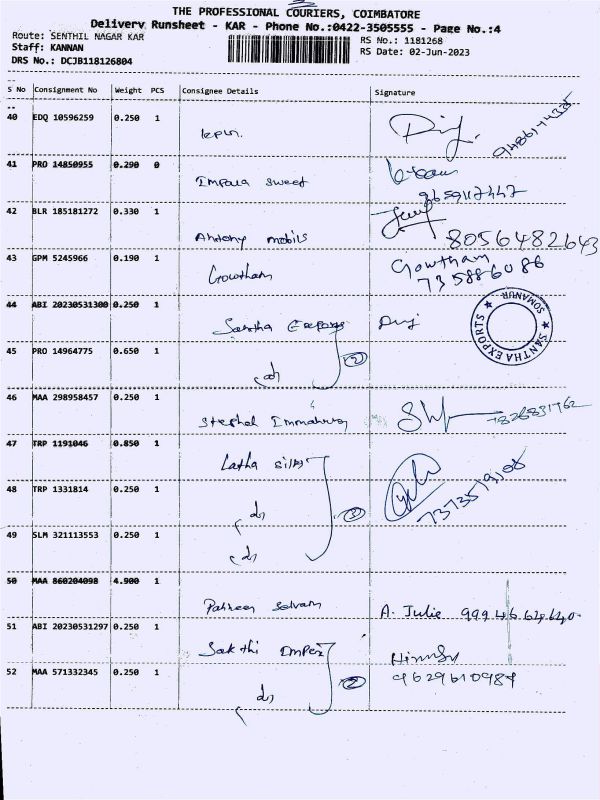 THE PROFESSIONAL COURIERS, COIMBATORE
Delivery Runsheet - KAR - Phone No.:0422-3505555 - Page No.:4
Route: SENTHIL NAGAR KAR
RS No.: 1181268
Staff: KANNAN
RS Date: 02-Jun-2023
DRS No.: DCJB118126804
S No Consignment No Weight PCS Consignee Details Signature
40 EDQ 10596259 0.250 1
9486174335
41 PRO 14850955 0.290 0
Impala sweet
9659117447
42 BLR 185181272 0.330 1
Antony mobils
8056482643
43 GPM 5245966 0.190 1
Gowtham Gowtham
735886086
44 ABI 20230531300 0.250 1
Santha Exports
SANTHA EXPORTS ★ SOMANUR ★
45 PRO 14964775 0.650 1
do 2
46 MAA 298958457 0.250 1
7826831762
47 TRP 1191046 0.850 1
Latha silks
48 TRP 1331814 0.250 1
do 3
7373519108
49 SLM 321113553 0.250 1
do
50 MAA 860204098 4.900 1
Selvam A. Julie 9994664640
51 ABI 20230531297 0.250 1
Sakthi Impex
52 MAA 571332345 0.250 1
9629610984
do 2